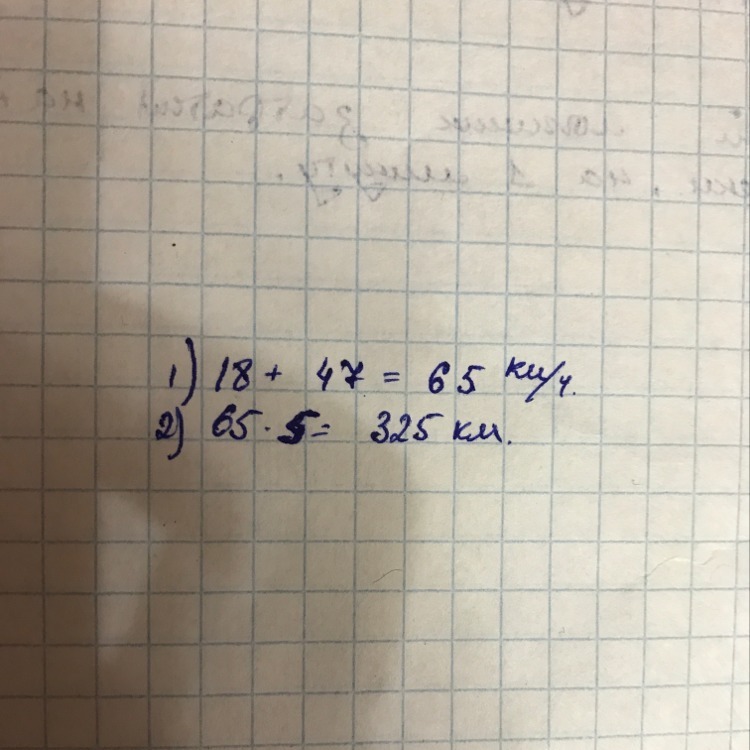 1) 18 + 47 = 65 км/ч.
2) 65 · 5 = 325 км.